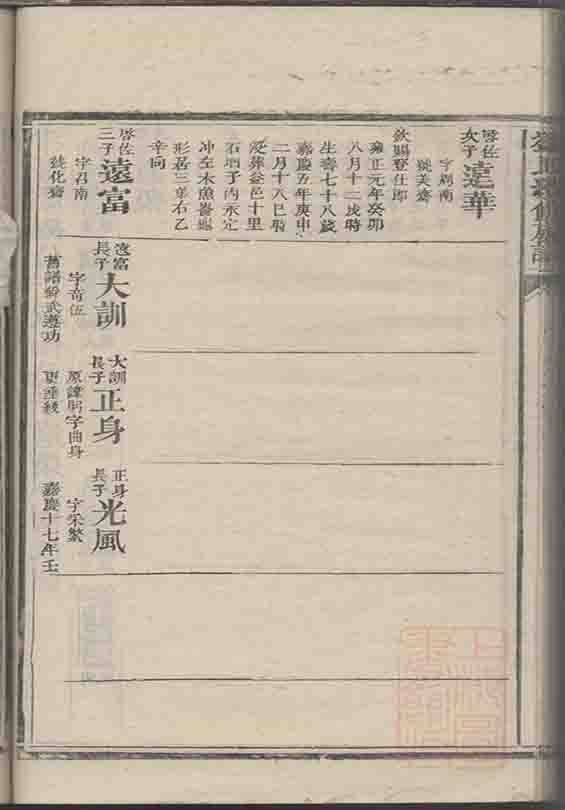 啓佐次子遠華
字湘南
號美齋
欽賜登仕郎
雍正元年癸卯
八月十二戌時
生壽七十八歲
嘉慶五年庚申
二月十八巳時
歿葬益邑十里
石壩子內永定
冲左木魚崙龜
形居三塚右乙
辛向
啓佐三子遠富
字召南
號化齋
遠富長子大訓
字奇伍
舊譜號武遵功
大訓長子正身
原諱躬字曲身
更垂綏
正身長子光風
字采繁
嘉慶十七年壬